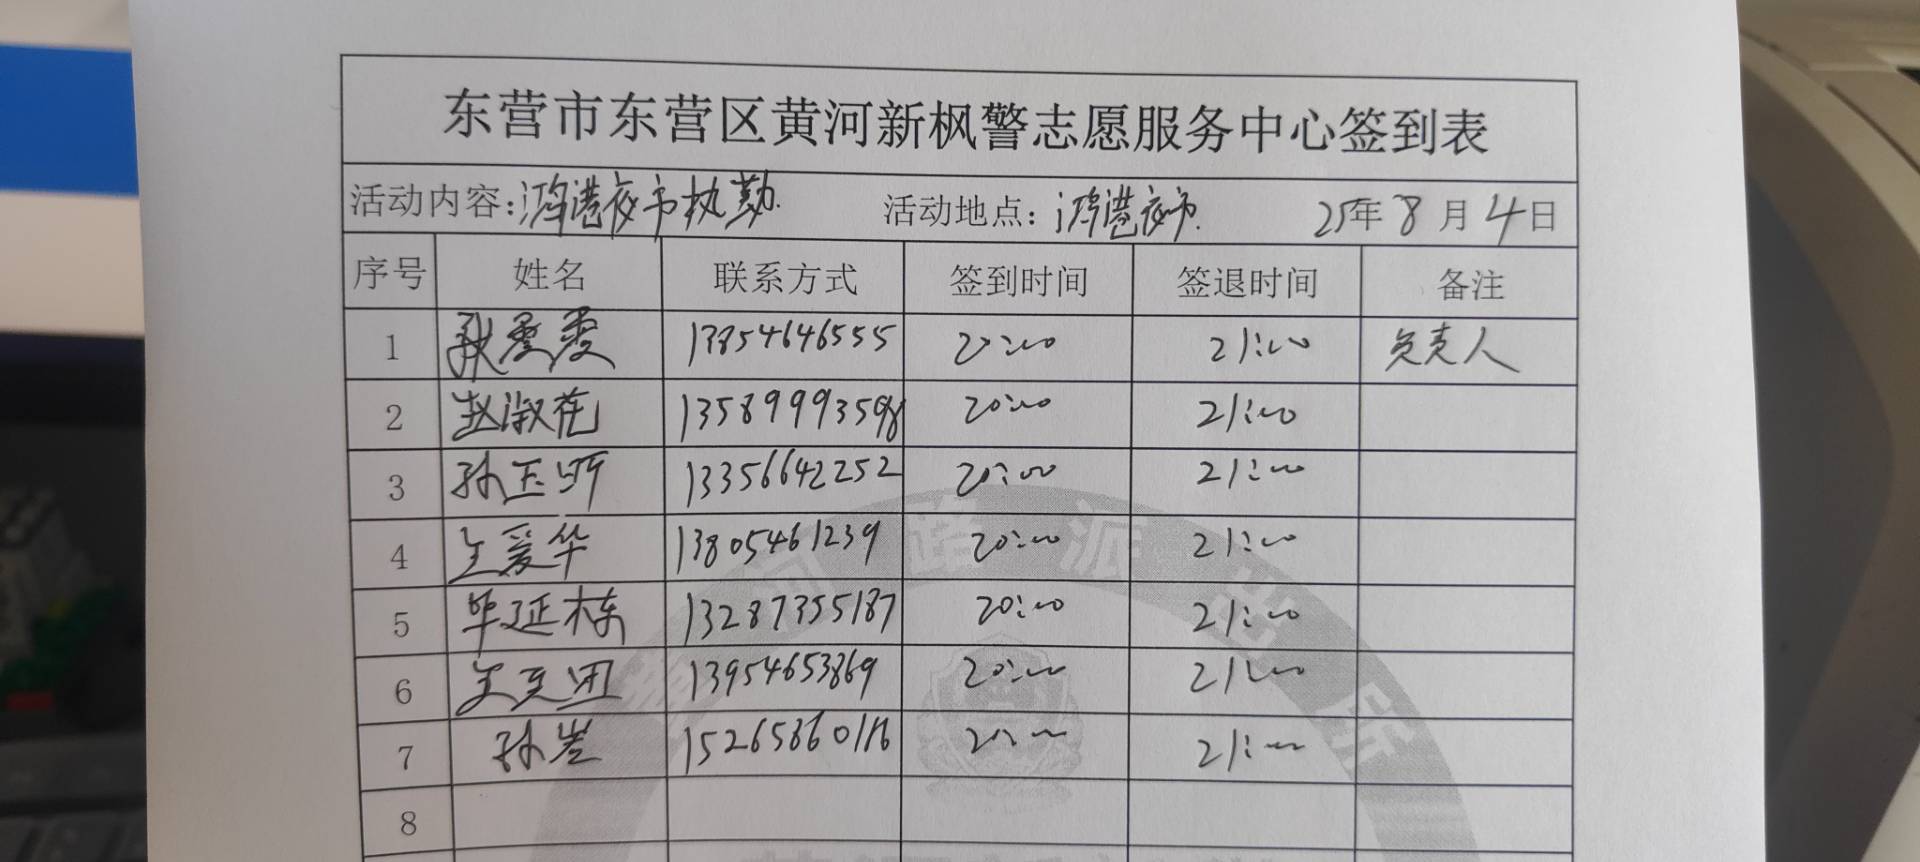 东营市东营区黄河新枫警志愿服务中心签到表
活动内容：鸿港夜市执勤. 活动地点：鸿港夜市. 25年8月4日
序号 姓名 联系方式 签到时间 签退时间 备注
1 13854646555 20:00 21:00 负责人
2 赵淑花 13589993598 20:00 21:00
3 孙玉明 13356642252 20:00 21:00
4 王爱华 13805461239 20:00 21:00
5 毕延栋 13287355187 20:00 21:00
6 13954653869 20:00 21:00
7 孙岩 15265860116 20:00 21:00
8
黄河路派出所